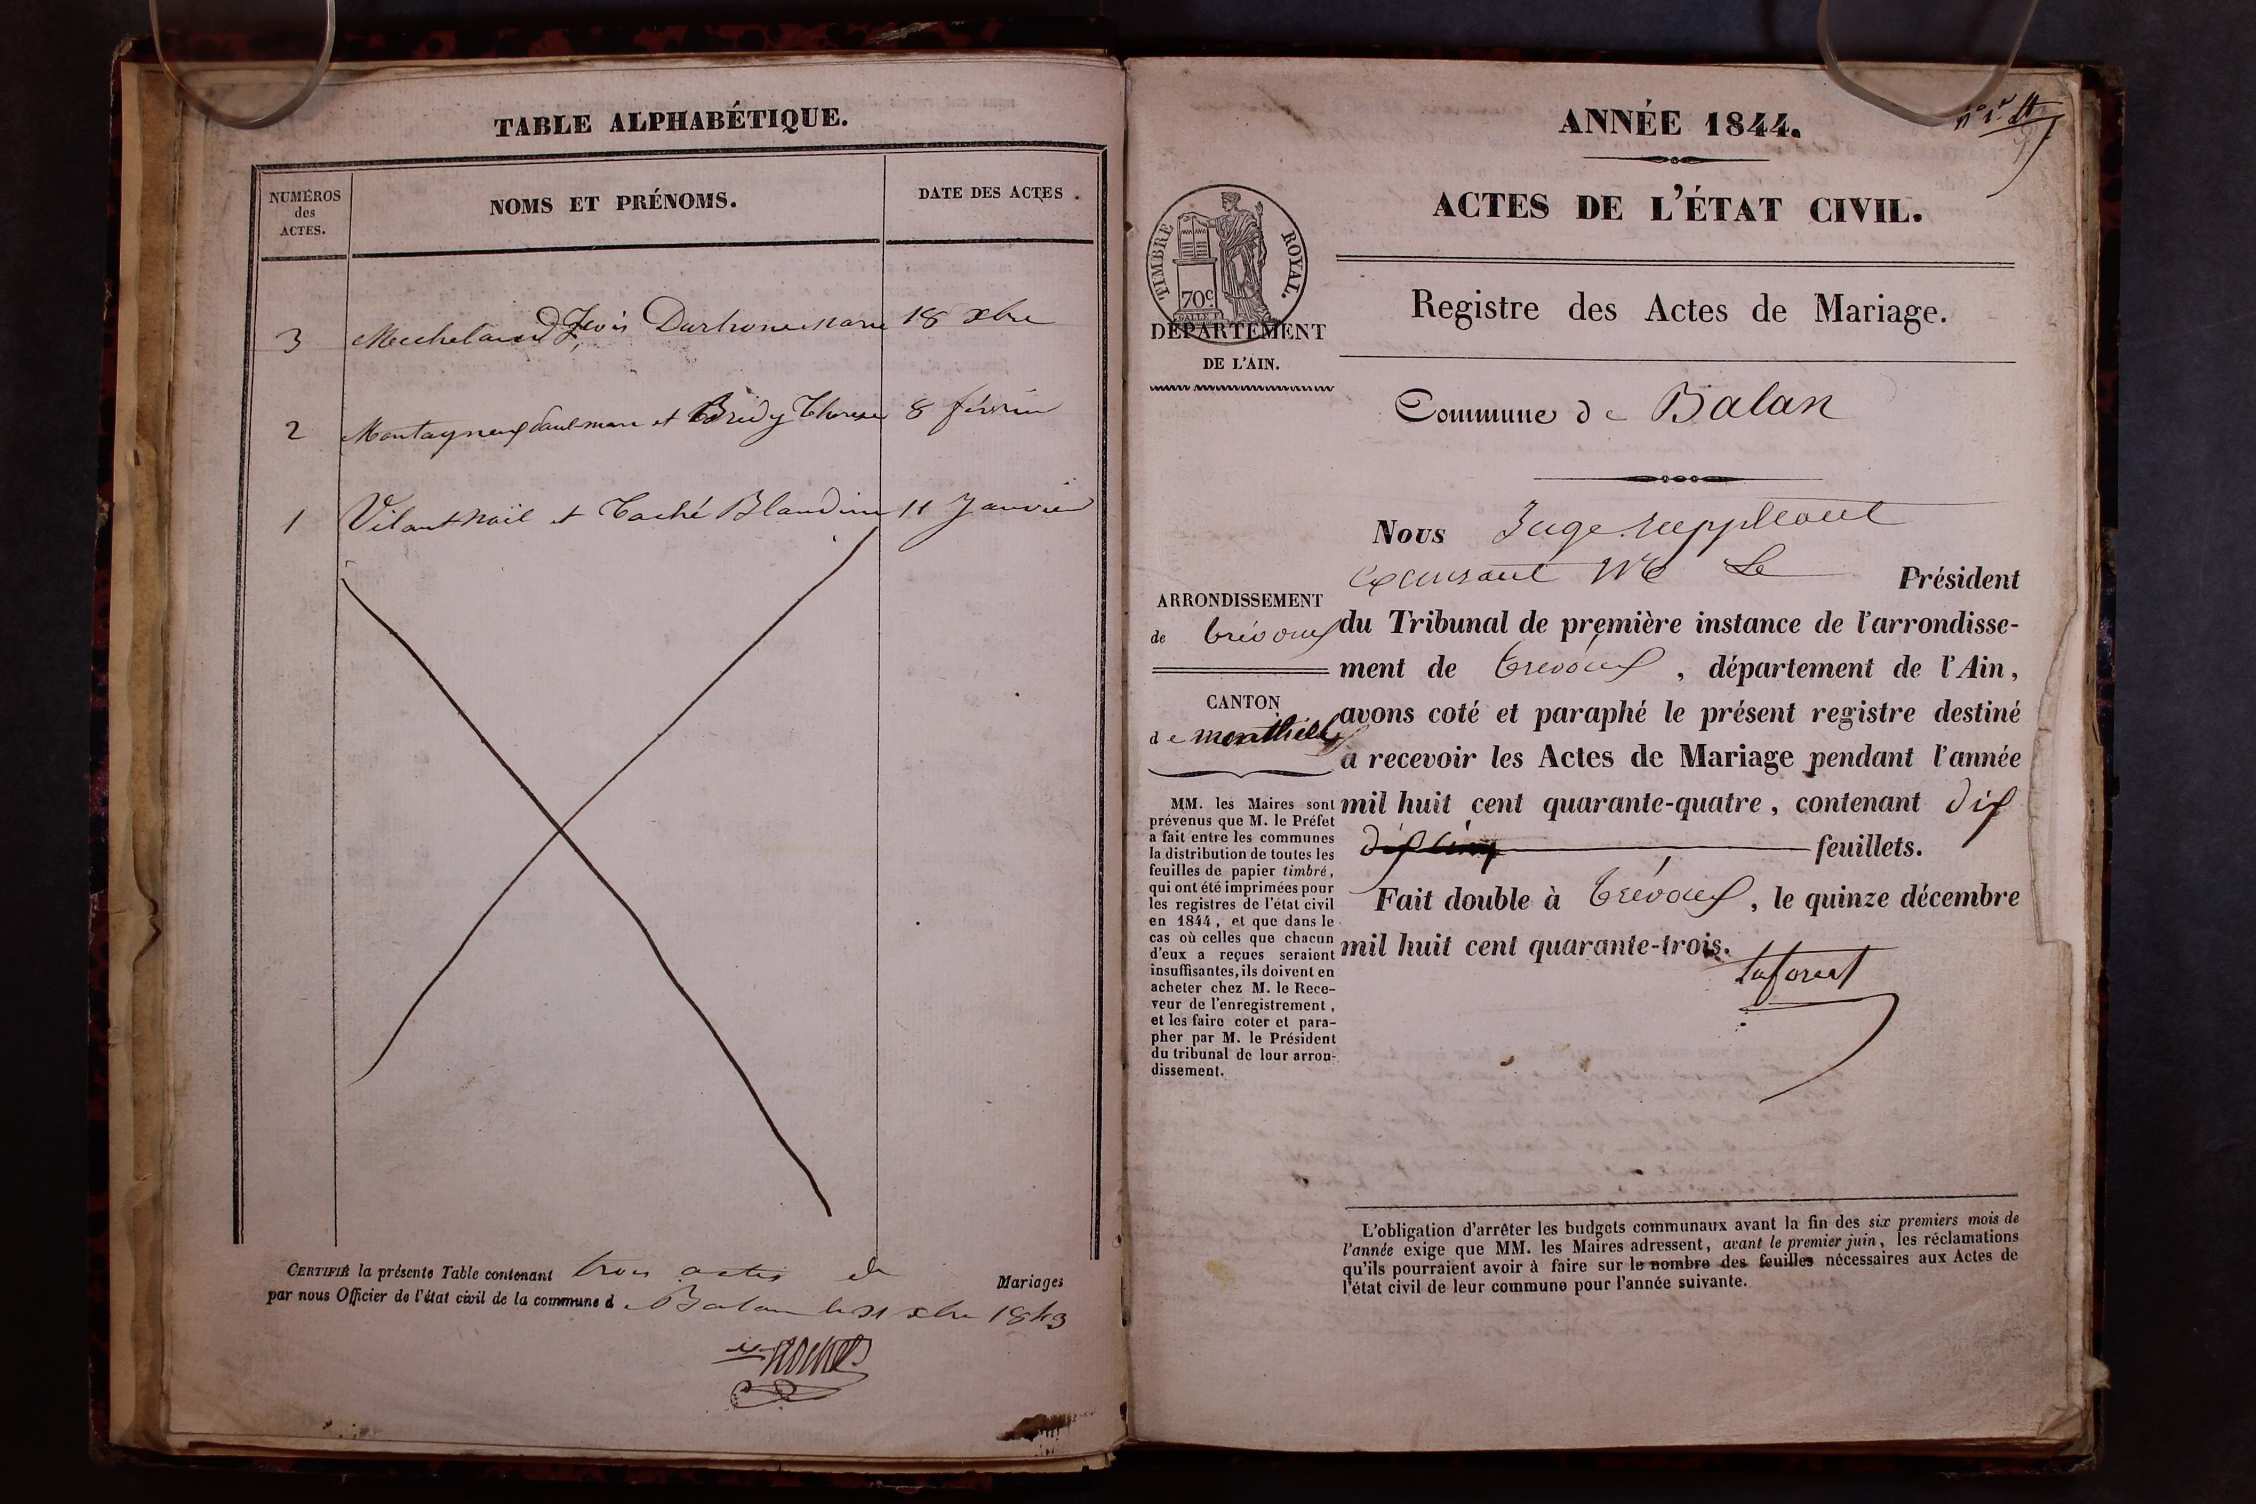 TABLE ALPHABÉTIQUE.
NUMÉROS
des
ACTES.
NOMS ET PRÉNOMS.
DATE DES ACTES.
3 Marie 18 xbre
2 et Bridy Therese 8 février
1 Vilant Noël et Taché Blandine 11 Janvier
CERTIFIÉ la présente Table contenant trois actes de Mariages
par nous Officier de l'état civil de la commune de Balan le 31 xbre 1843
ANNÉE 1844.
ACTES DE L'ÉTAT CIVIL.
TIMBRE ROYAL.
70c
DÉPARTEMENT
DE L'AIN.
Registre des Actes de Mariage.
Commune de Balan
ARRONDISSEMENT
de trévoux
CANTON
de
MM. les Maires sont
prévenus que M. le Préfet
a fait entre les communes
la distribution de toutes les
feuilles de papier timbré,
qui ont été imprimées pour
les registres de l'état civil
en 1844, et que dans le
cas où celles que chacun
d'eux a reçues seraient
insuffisantes, ils doivent en
acheter chez M. le Rece-
veur de l'enregistrement,
et les faire coter et para-
pher par M. le Président
du tribunal de leur arron-
dissement.
Nous Juge suppléant
excusant Mr Le Président
du Tribunal de première instance de l'arrondisse-
ment de trévoux, département de l'Ain,
avons coté et paraphé le présent registre destiné
à recevoir les Actes de Mariage pendant l'année
mil huit cent quarante-quatre, contenant dix
feuillets.
Fait double à trévoux, le quinze décembre
mil huit cent quarante-trois.
L'obligation d'arrêter les budgets communaux avant la fin des six premiers mois de
l'année exige que MM. les Maires adressent, avant le premier juin, les réclamations
qu'ils pourraient avoir à faire sur le nombre des feuilles nécessaires aux Actes de
l'état civil de leur commune pour l'année suivante.